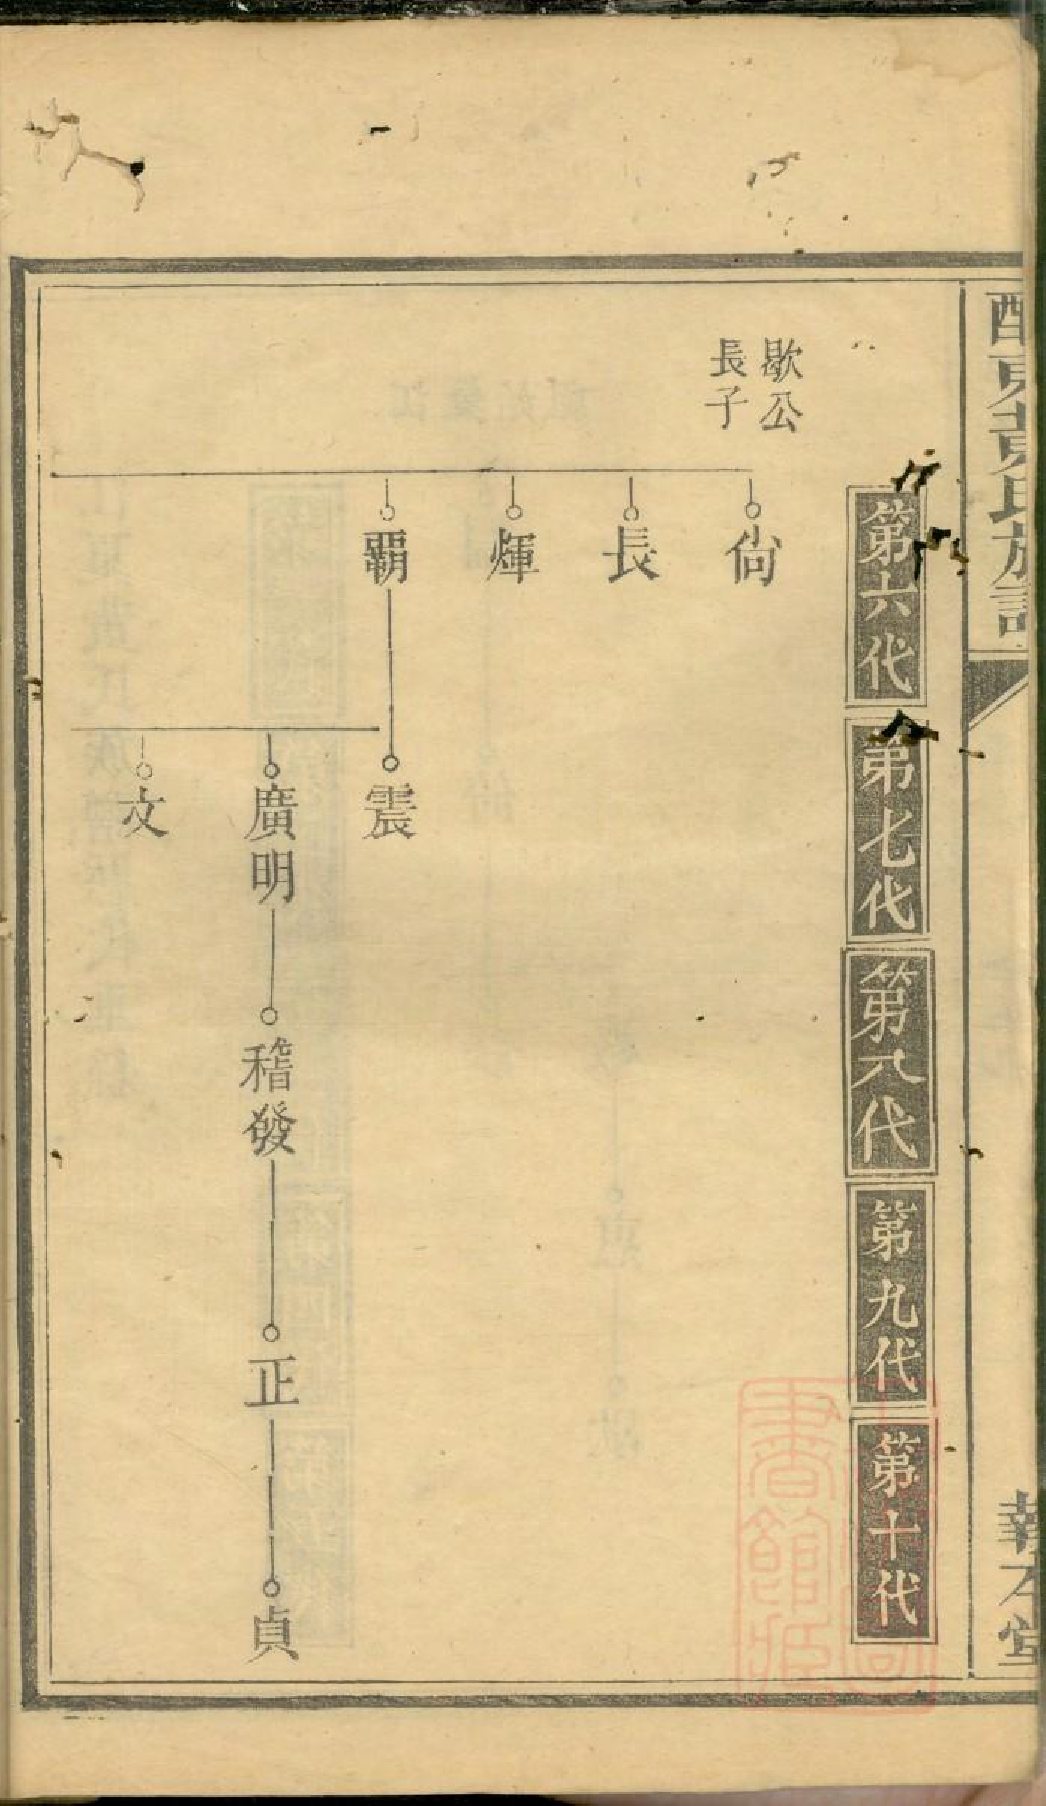 東黄氏族譜
報本堂
第六代
第七代
第八代
第九代
第十代
歇公
長子
尙
長
煇
覇
震
廣明
稽發
正
貞
文